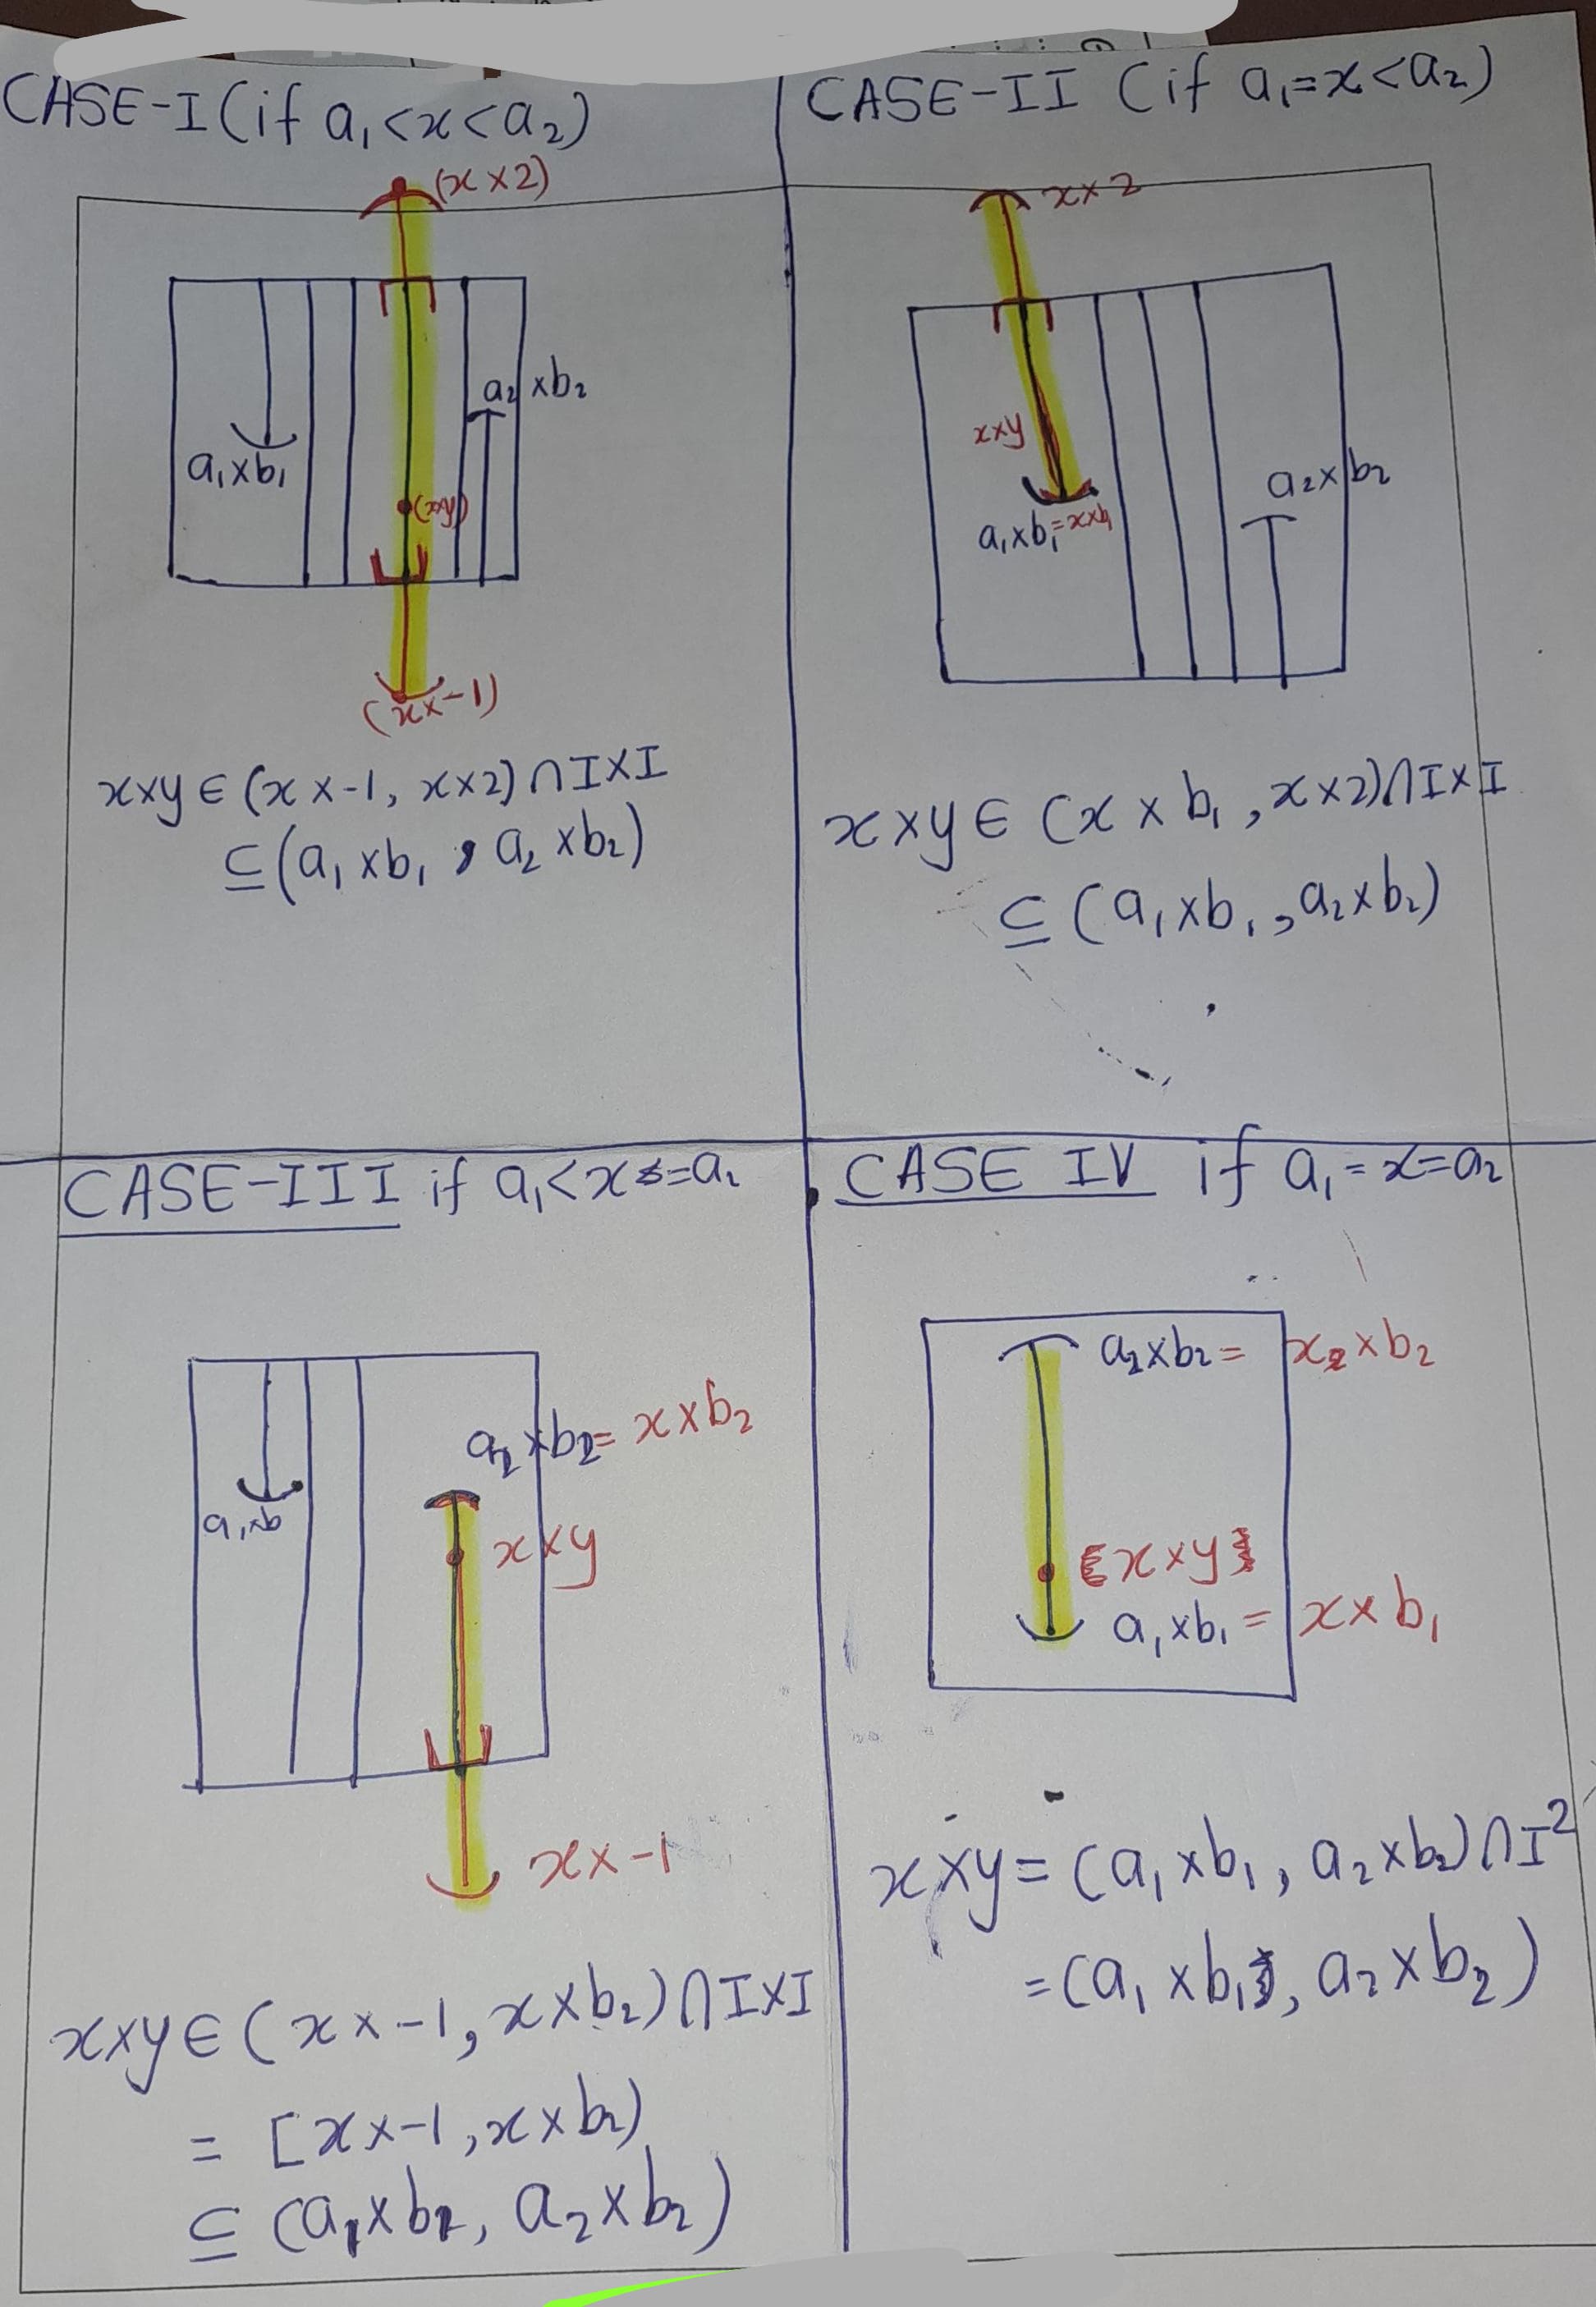 CASE-I (if a₁<x<a₂)
(x×2)
a₂×b₂
a₁×b₁
(x×y)
(x×-1)
x×y∈(x×-1, x×2)∩I×I
⊆(a₁×b₁, a₂×b₂)
CASE-II (if a₁=x<a₂)
x×2
x×y
a₂×b₂
a₁×b₁=x×b₁
x×y∈(x×b₁, x×2)∩I×I
⊆(a₁×b₁, a₂×b₂)
CASE-III if a₁<x=a₂
a₂×b₂=x×b₂
a₁×b
x×y
x×-1
x×y∈(x×-1, x×b₂)∩I×I
=[x×-1, x×b₂)
⊆(a₁×b₁, a₂×b₂)
CASE IV if a₁=x=a₂
a₂×b₂=x₂×b₂
x×y
a₁×b₁=x×b₁
x×y=(a₁×b₁, a₂×b₂)∩I²
=(a₁×b₁, a₂×b₂)